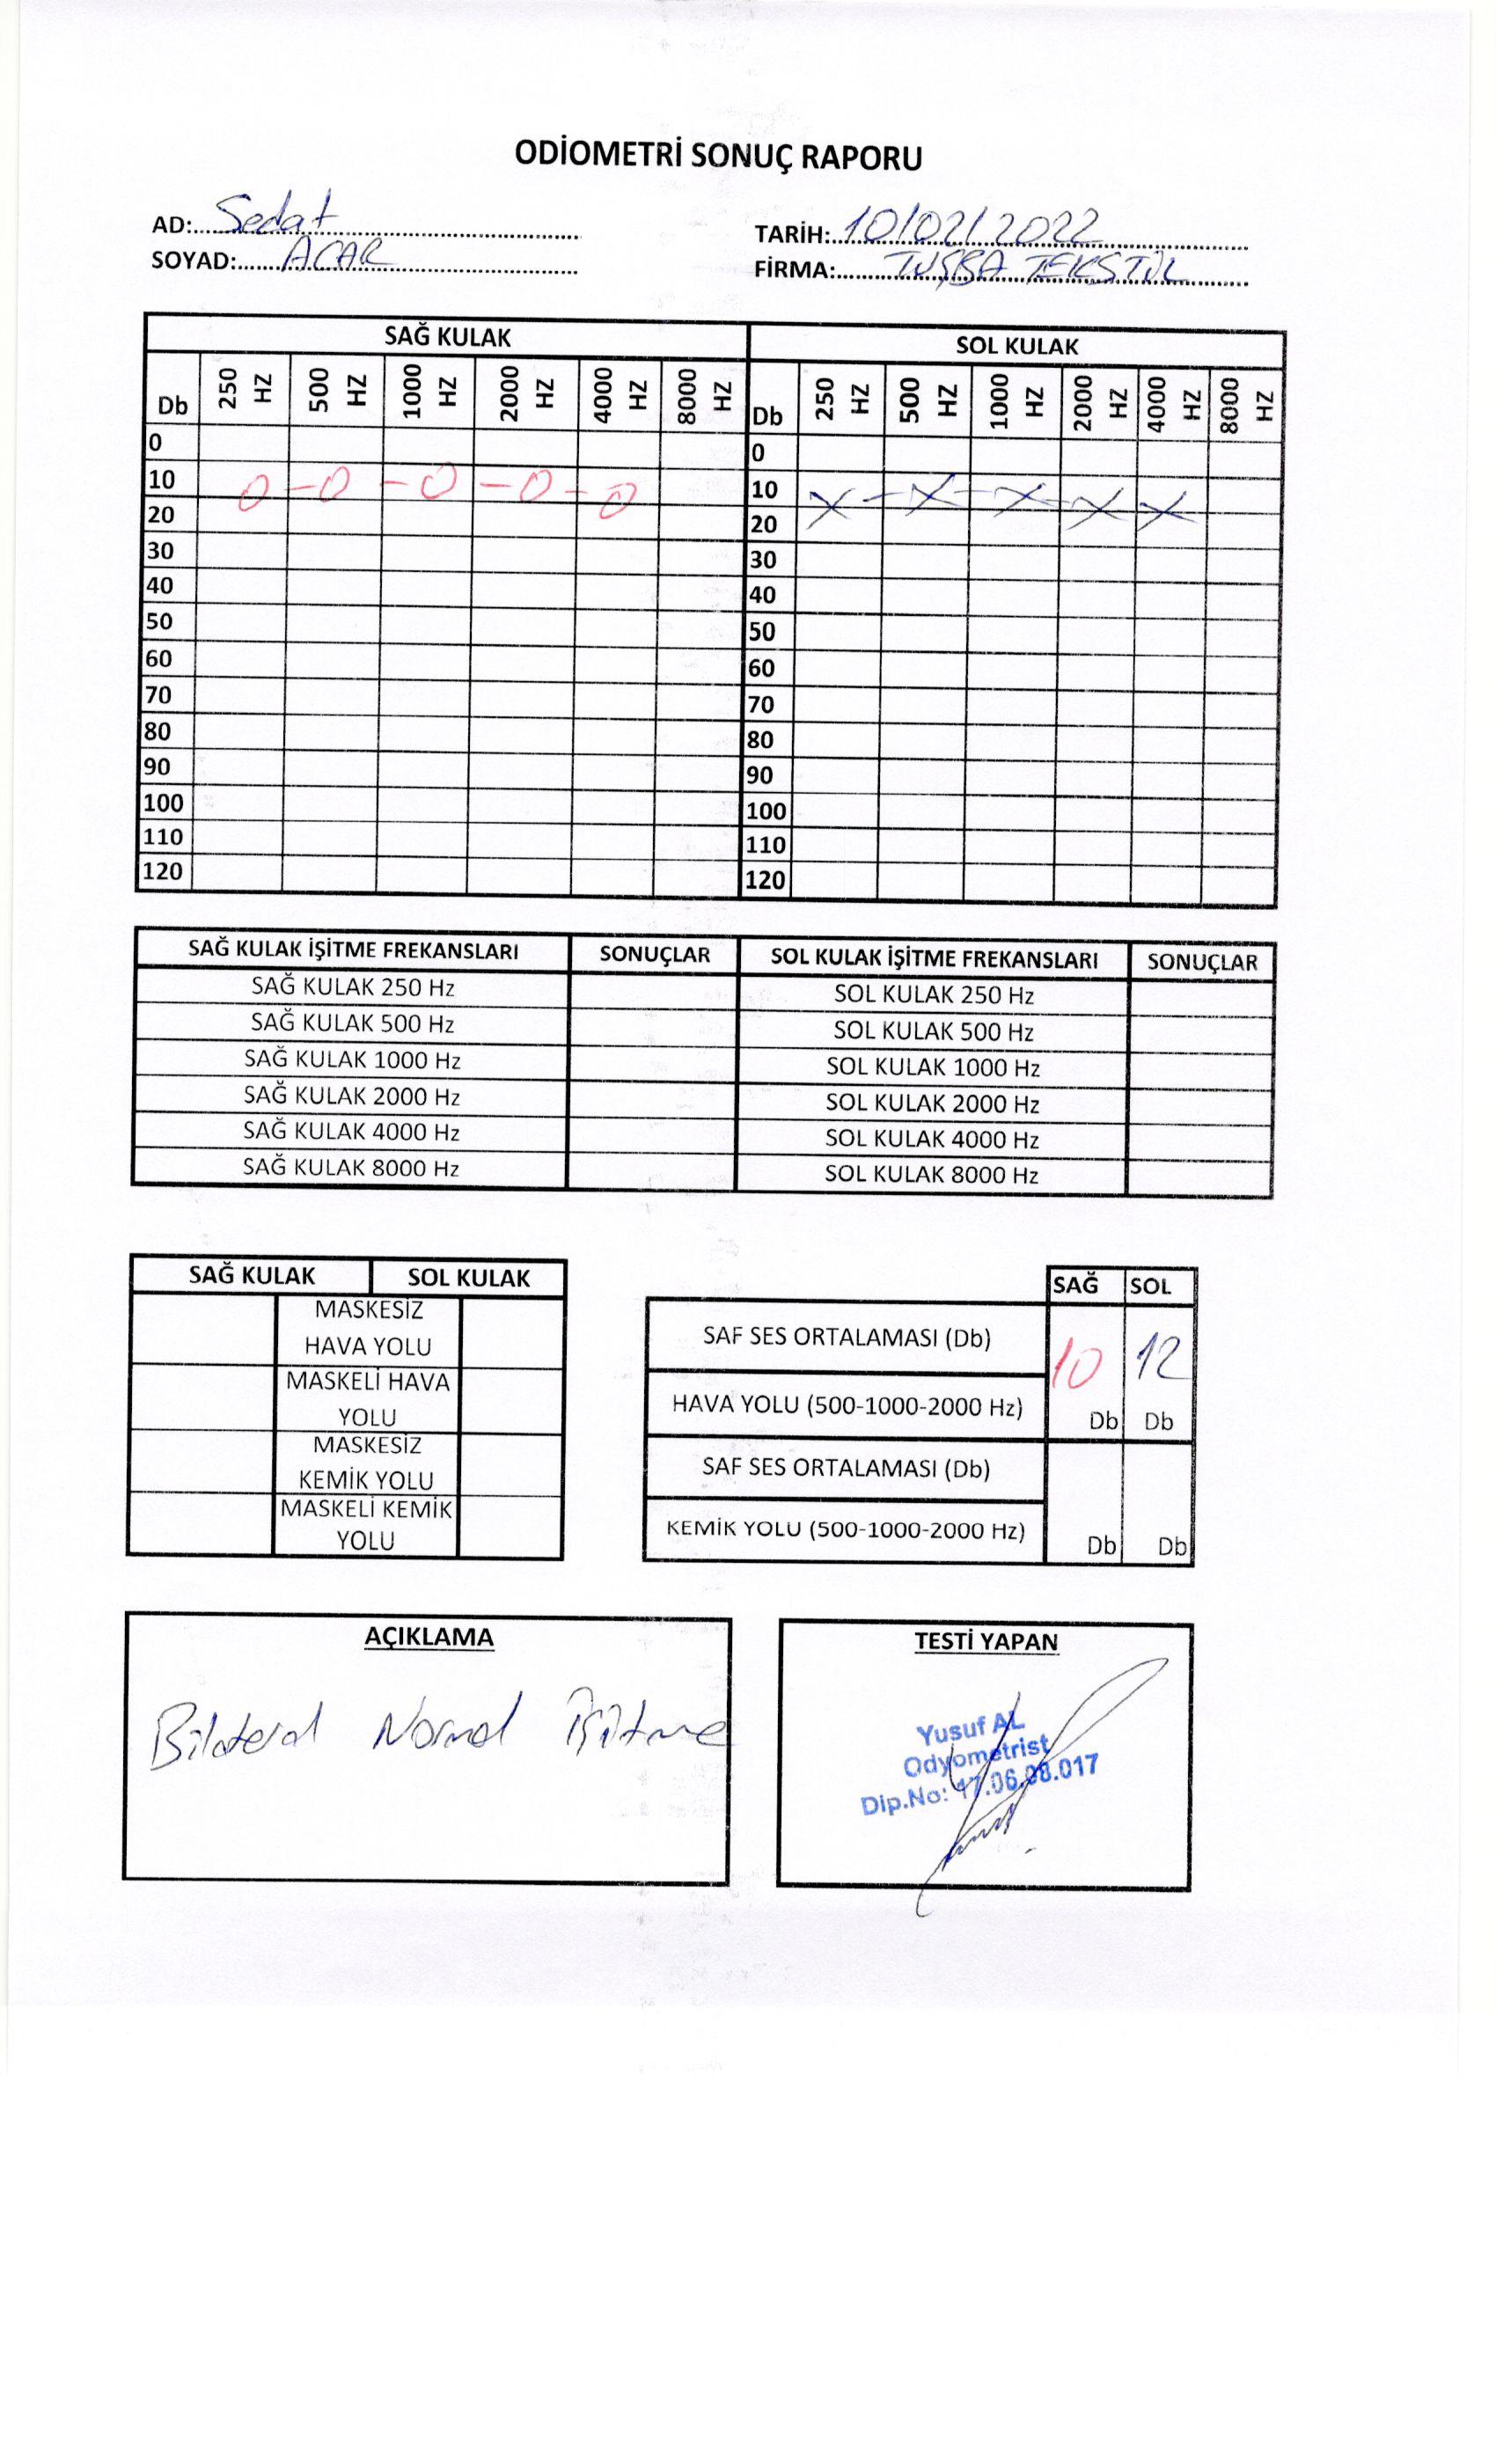 ODİOMETRİ SONUÇ RAPORU
AD: Sedat
TARİH: 10/02/2022
SOYAD: ACAR
FİRMA: TUŞBA TEKSTİL
SAĞ KULAK SOL KULAK
Db 250 HZ 500 HZ 1000 HZ 2000 HZ 4000 HZ 8000 HZ Db 250 HZ 500 HZ 1000 HZ 2000 HZ 4000 HZ 8000 HZ
0 0
10 O-O-O-O-O 10 X-X-X-X-X
20 20
30 30
40 40
50 50
60 60
70 70
80 80
90 90
100 100
110 110
120 120
SAĞ KULAK İŞİTME FREKANSLARI SONUÇLAR SOL KULAK İŞİTME FREKANSLARI SONUÇLAR
SAĞ KULAK 250 Hz SOL KULAK 250 Hz
SAĞ KULAK 500 Hz SOL KULAK 500 Hz
SAĞ KULAK 1000 Hz SOL KULAK 1000 Hz
SAĞ KULAK 2000 Hz SOL KULAK 2000 Hz
SAĞ KULAK 4000 Hz SOL KULAK 4000 Hz
SAĞ KULAK 8000 Hz SOL KULAK 8000 Hz
SAĞ KULAK SOL KULAK
MASKESİZ
HAVA YOLU
MASKELİ HAVA
YOLU
MASKESİZ
KEMİK YOLU
MASKELİ KEMİK
YOLU
SAĞ SOL
SAF SES ORTALAMASI (Db) 10 12
HAVA YOLU (500-1000-2000 Hz) Db Db
SAF SES ORTALAMASI (Db)
KEMİK YOLU (500-1000-2000 Hz) Db Db
AÇIKLAMA
Bilateral Normal İşitme
TESTİ YAPAN
Yusuf AL
Odyometrist
Dip.No: 17.06.08.017